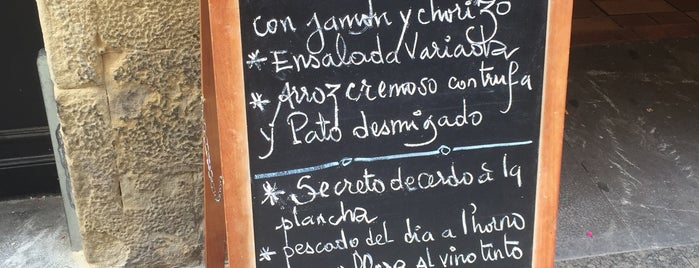 con jamón y chorizo
* Ensalada Variada
* Arroz cremoso con trufa
y Pato desmigado
* Secreto de cerdo à la
plancha
* pescado del dia a l'horno
al vino tinto